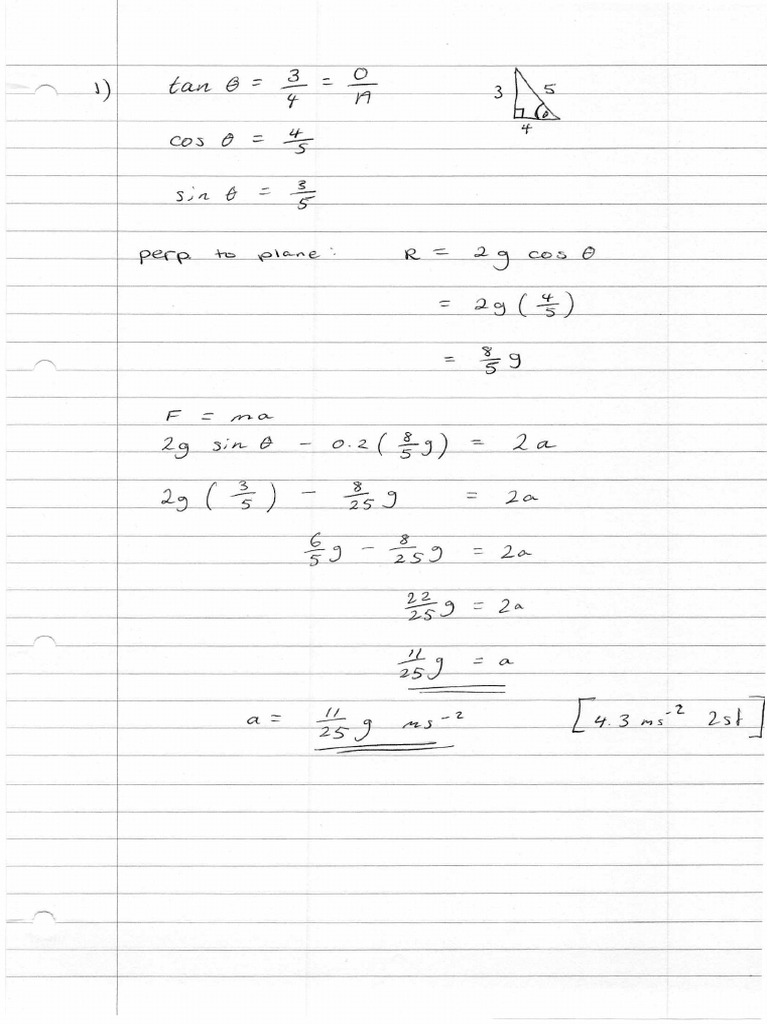 1) tan θ = 3/4 = O/A
3 5
4 θ
cos θ = 4/5
sin θ = 3/5
perp to plane: R = 2g cos θ
= 2g (4/5)
= 8/5 g
F = ma
2g sin θ - 0.2 (8/5 g) = 2a
2g (3/5) - 8/25 g = 2a
6/5 g - 8/25 g = 2a
22/25 g = 2a
11/25 g = a
a = 11/25 g ms⁻² [4.3 ms⁻² 2sf]